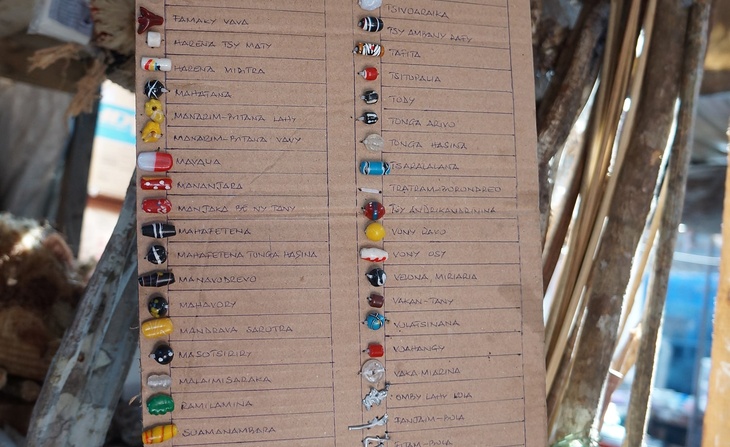 FAMAKY VAVA
HARENA TSY MATY
HARENA MIDITRA
MAHATANA
MANARIM-BITANA LAHY
MANARIM-BITANA VAVY
MAVALIA
MANANJARA
MANJAKA NY TANY
MAHAFETENA
MAHAFETENA TONGA HASINA
MAHAVORY
MANDRAVA SAROTRA
MASOTSIRIRY
MALAIMISARAKA
RAMILAMINA
SUAMANAMBARA
TSIVOARAIKA
TSY AMBANY
TAFITA
TSITUPALIA
TODY
TONGA ARIVO
TONGA HASINA
TSARALALANA
TSY ANDRIKANDRININA
VONY RAVO
VONY OSY
VELONA MIRIARIA
VAKAN-TANY
VOLATSINANA
VOAHANGY
VAKA MIARINA
OMBY LAHY VOLA